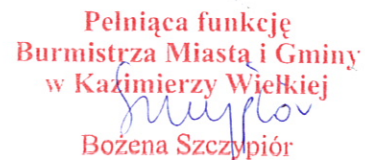 Pełniąca funkcję
Burmistrza Miasta i Gminy
w Kazimierzy Wielkiej
Bożena Szczypiór